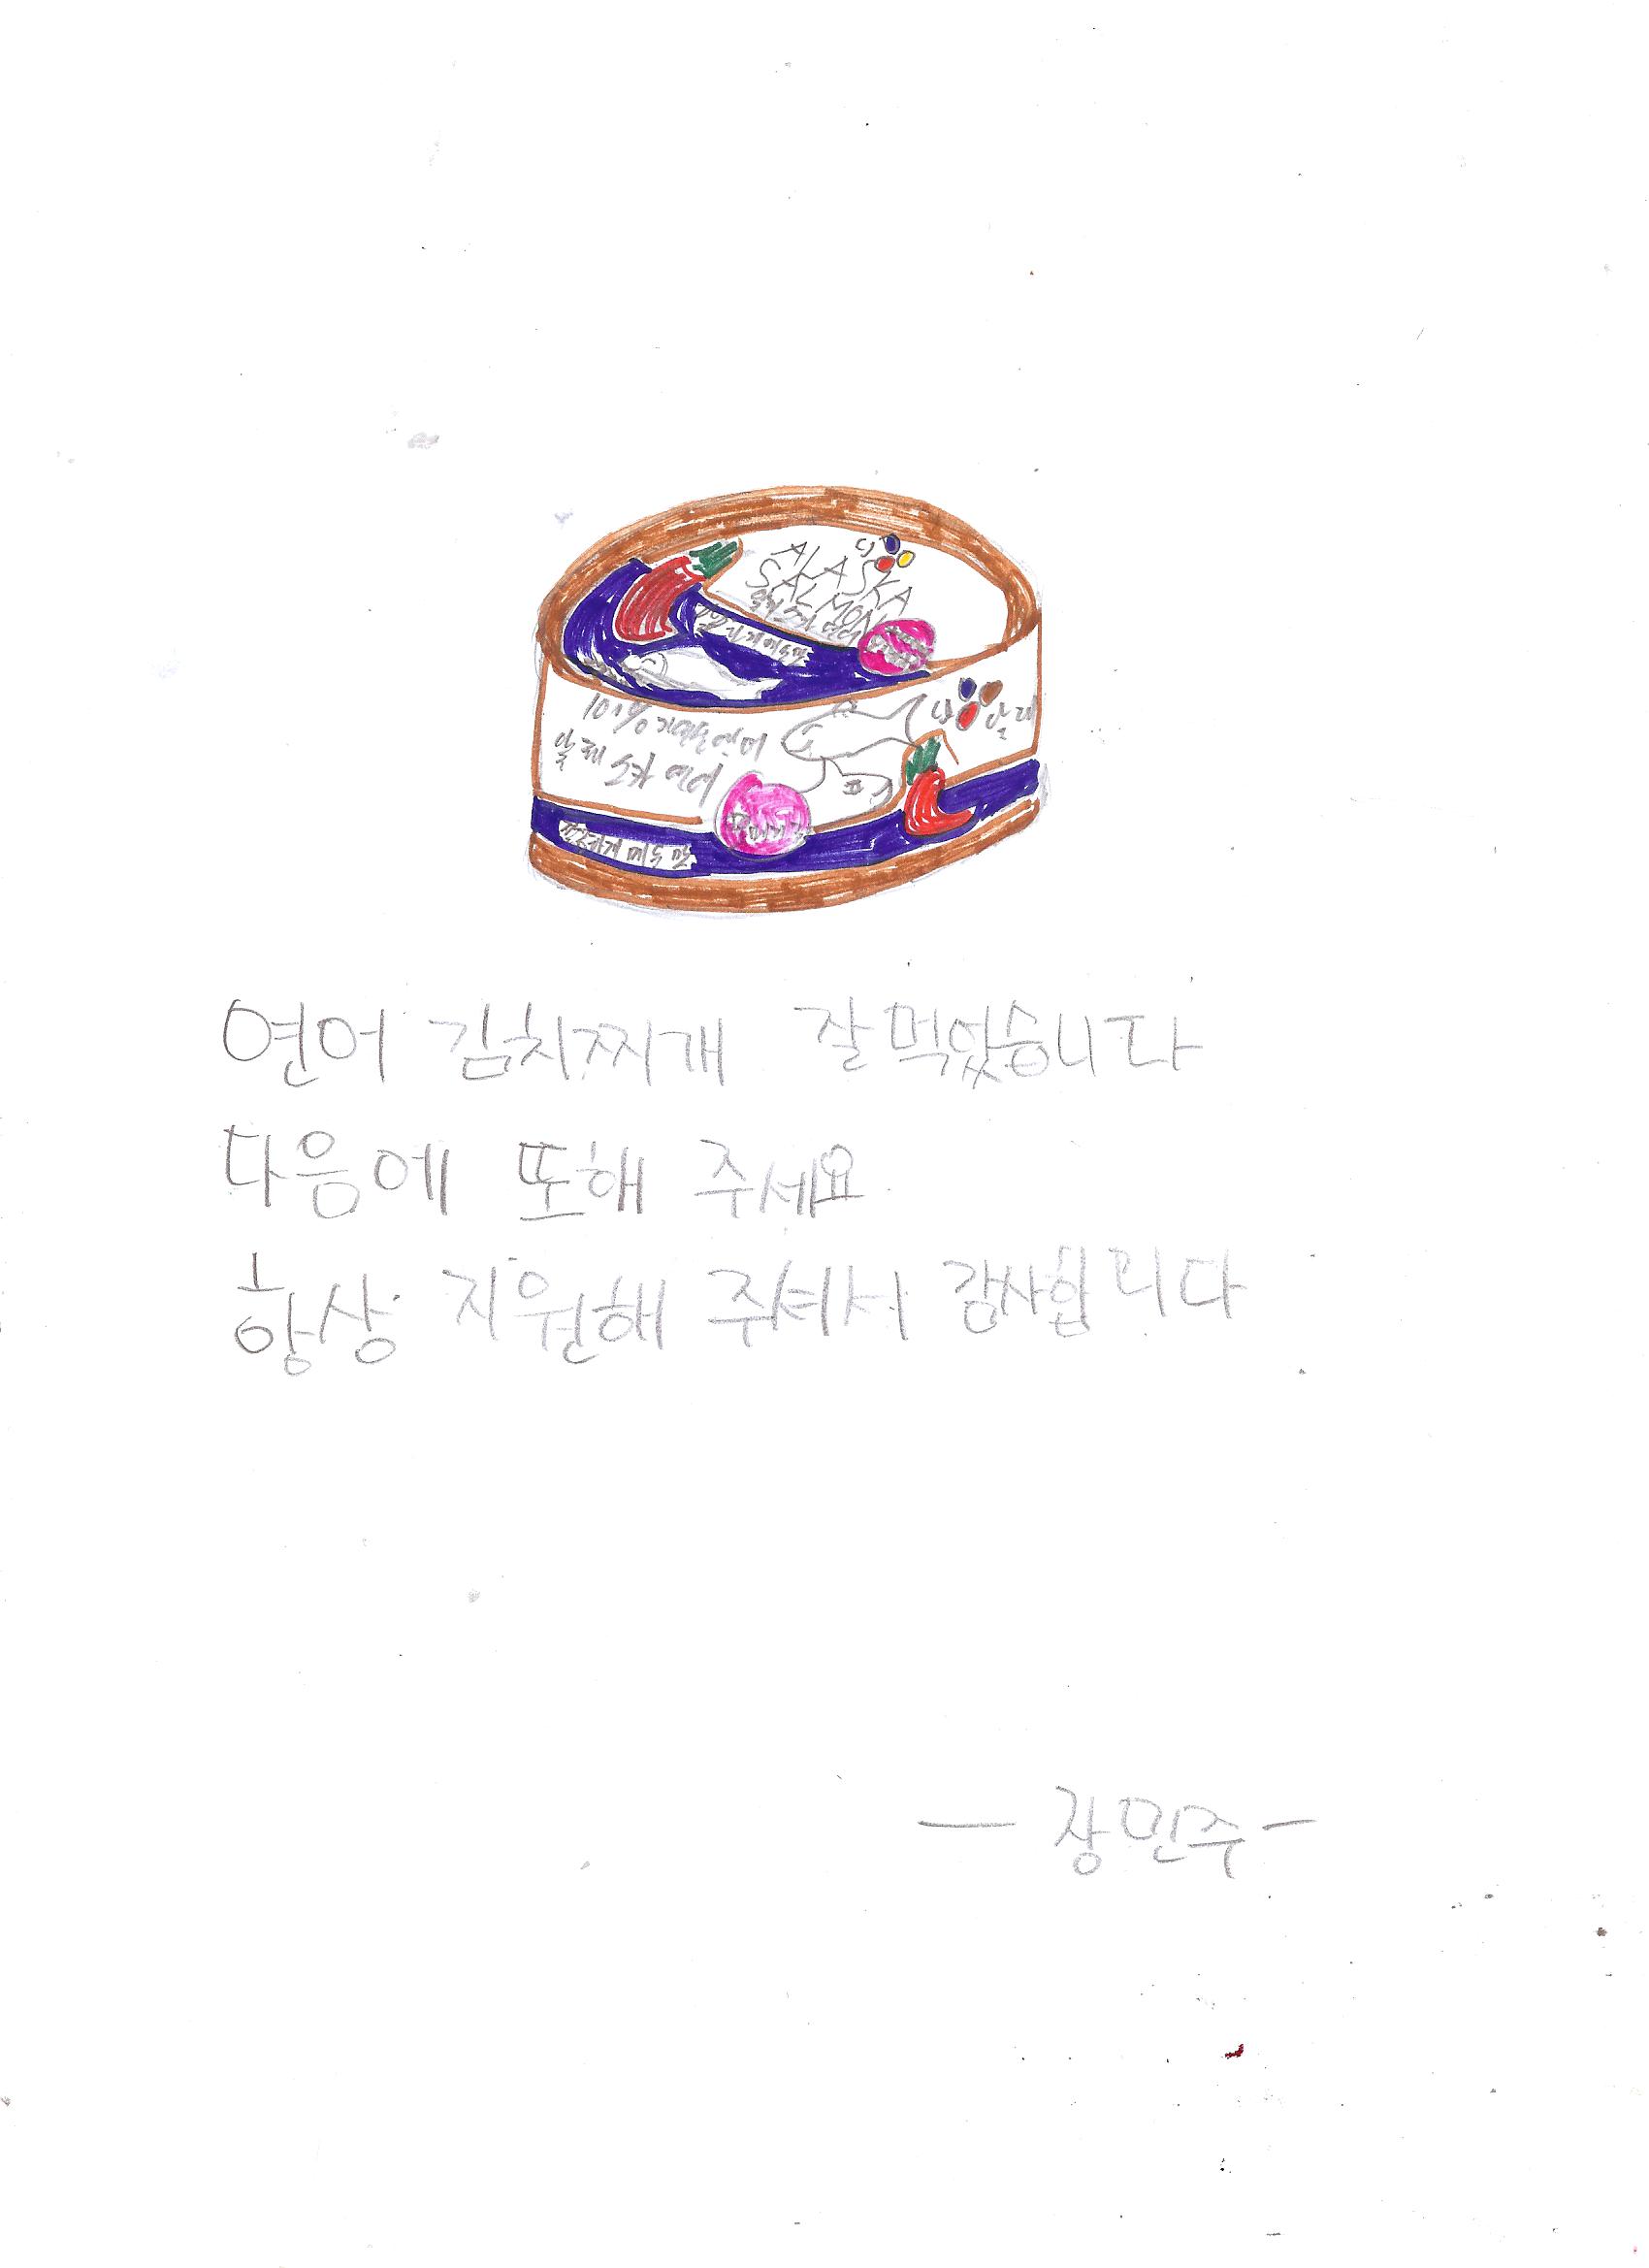 ALASKA
SALMON
알래스카 연어
연어 김치찌개 잘먹었습니다
다음에 또해 주세요
항상 지원해 주셔서 감사합니다
— 장민주 -